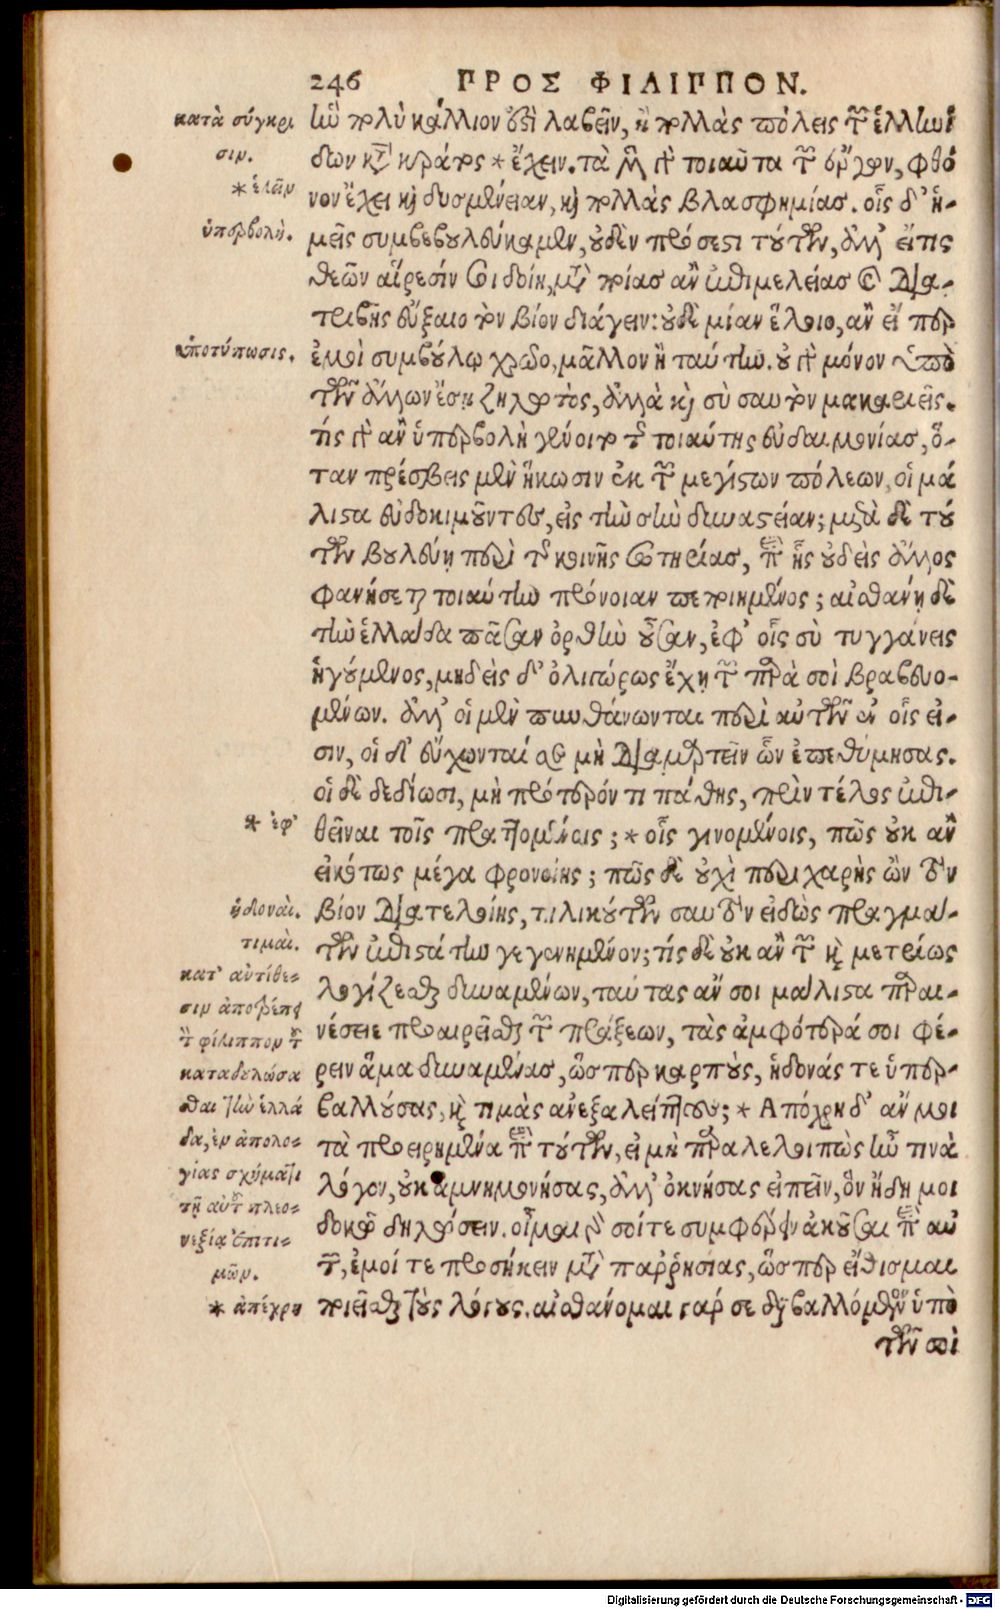 246 ΠΡΟΣ ΦΙΛΙΠΠΟΝ.
ἣν πολὺ κάλλιον ὅτι λαβεῖν, ἢ πολλὰς πόλεις τῶν ἑλληνί
δων κατὰ κράτος * ἔχειν. τὰ μὲν γὰρ τοιαῦτα τῶν ἔργων, φθό
νον ἔχει καὶ δυσμένειαν, καὶ πολλὰς βλασφημίας. οἷς δ' ἡ-
μεῖς συμβεβουλεύκαμεν, οὐδὲν πρόσεστι τούτων, ἀλλ' εἴ τις
θεῶν αἵρεσίν σοι δοίη, μετὰ ποίας ἂν ἐπιμελείας καὶ δια-
τριβῆς εὔξαιο τὸν βίον διάγειν: οὐδὲ μίαν ἕλοιο, ἂν εἴ περ
ἐμοὶ συμβούλῳ χρῷο, μᾶλλον ἢ ταύτην. οὐ γὰρ μόνον ὑπὸ
τῶν ἄλλων ἔσῃ ζηλωτὸς, ἀλλὰ καὶ σὺ σαυτὸν μακαριεῖς.
τίς γὰρ ἂν ὑπερβολὴ γένοιτο τῆς τοιαύτης εὐδαιμονίας, ὅ-
ταν πρέσβεις μὲν ἥκωσιν ἐκ τῶν μεγίστων πόλεων, οἱ μά
λιστα εὐδοκιμοῦντες, εἰς τὴν σὴν δυναστείαν; μετὰ δὲ τού
των βουλεύῃ περὶ τῆς κοινῆς σωτηρίας, περὶ ἧς οὐδεὶς ἄλλος
φανήσεται τοιαύτην πρόνοιαν πεποιημένος; αἰσθάνῃ δὲ
τὴν ἑλλάδα πᾶσαν ὀρθὴν οὖσαν, ἐφ' οἷς σὺ τυγχάνεις
ἡγούμενος, μηδεὶς δ' ὀλιγώρως ἔχῃ τῶν παρὰ σοὶ βραβευο-
μένων. ἀλλ' οἱ μὲν πυνθάνωνται περὶ αὐτῶν ἐν οἷς εἰ-
σιν, οἱ δ' εὔχωνταί σε μὴ διαμαρτεῖν ὧν ἐπεθύμησας.
οἱ δὲ δεδίωσι, μὴ πρότερόν τι πάθης, πρὶν τέλος ἐπι-
θεῖναι τοῖς πραττομένοις; * οἷς γινομένοις, πῶς οὐκ ἂν
εἰκότως μέγα φρονοίης; πῶς δὲ οὐχὶ περιχαρὴς ὢν τὸν
βίον διατελοίης, τηλικούτων σαυτὸν εἰδὼς πραγμά-
των ἐπιστάτην γεγενημένον; τίς δὲ οὐκ ἂν τῶν καὶ μετρίως
λογίζεσθαι δυναμένων, ταύτας ἄν σοι μάλιστα παραι-
νέσειε προαιρεῖσθαι τῶν πράξεων, τὰς ἀμφότερά σοι φέ-
ρειν ἅμα δυναμένας, ὥσπερ καρποὺς, ἡδονάς τε ὑπερ-
βαλλούσας, καὶ τιμὰς ἀνεξαλείπτους; * Ἀπόχρη δ' ἄν μοι
τὰ προειρημένα περὶ τούτων, εἰ μὴ παραλελοιπὼς ἦν τινὰ
λόγον, οὐκ ἀμνημονήσας, ἀλλ' ὀκνήσας εἰπεῖν, ὃν ἤδη μοι
δοκῶ δηλώσειν. οἶμαι γὰρ σοίτε συμφέρειν ἀκοῦσαι περὶ αὐ
τῶν, ἐμοί τε προσήκειν μετὰ παῤῥησίας, ὥσπερ εἴθισμαι
ποιεῖσθαι τοὺς λόγους. αἰσθάνομαι γάρ σε διαβαλλόμενον ὑπὸ
τῶν σοὶ
κατὰ σύγκρι
σιν.
* ἑλεῖν
ὑπερβολὴ.
ὑποτύπωσις.
* ἐφ'
ἡδοναὶ.
τιμαὶ.
κατ' ἀντίθε-
σιν ἀποτρέπει
τὸν φίλιππον τοῦ
καταδουλώσα
σθαι τὴν ἑλλά
δα, ἐν ἀπολο-
γίας σχήματι
τῇ αὐτοῦ πλεο-
νεξίᾳ ἐπιτι-
μῶν.
* ἀπέχρη
Digitalisierung gefördert durch die Deutsche Forschungsgemeinschaft - DFG